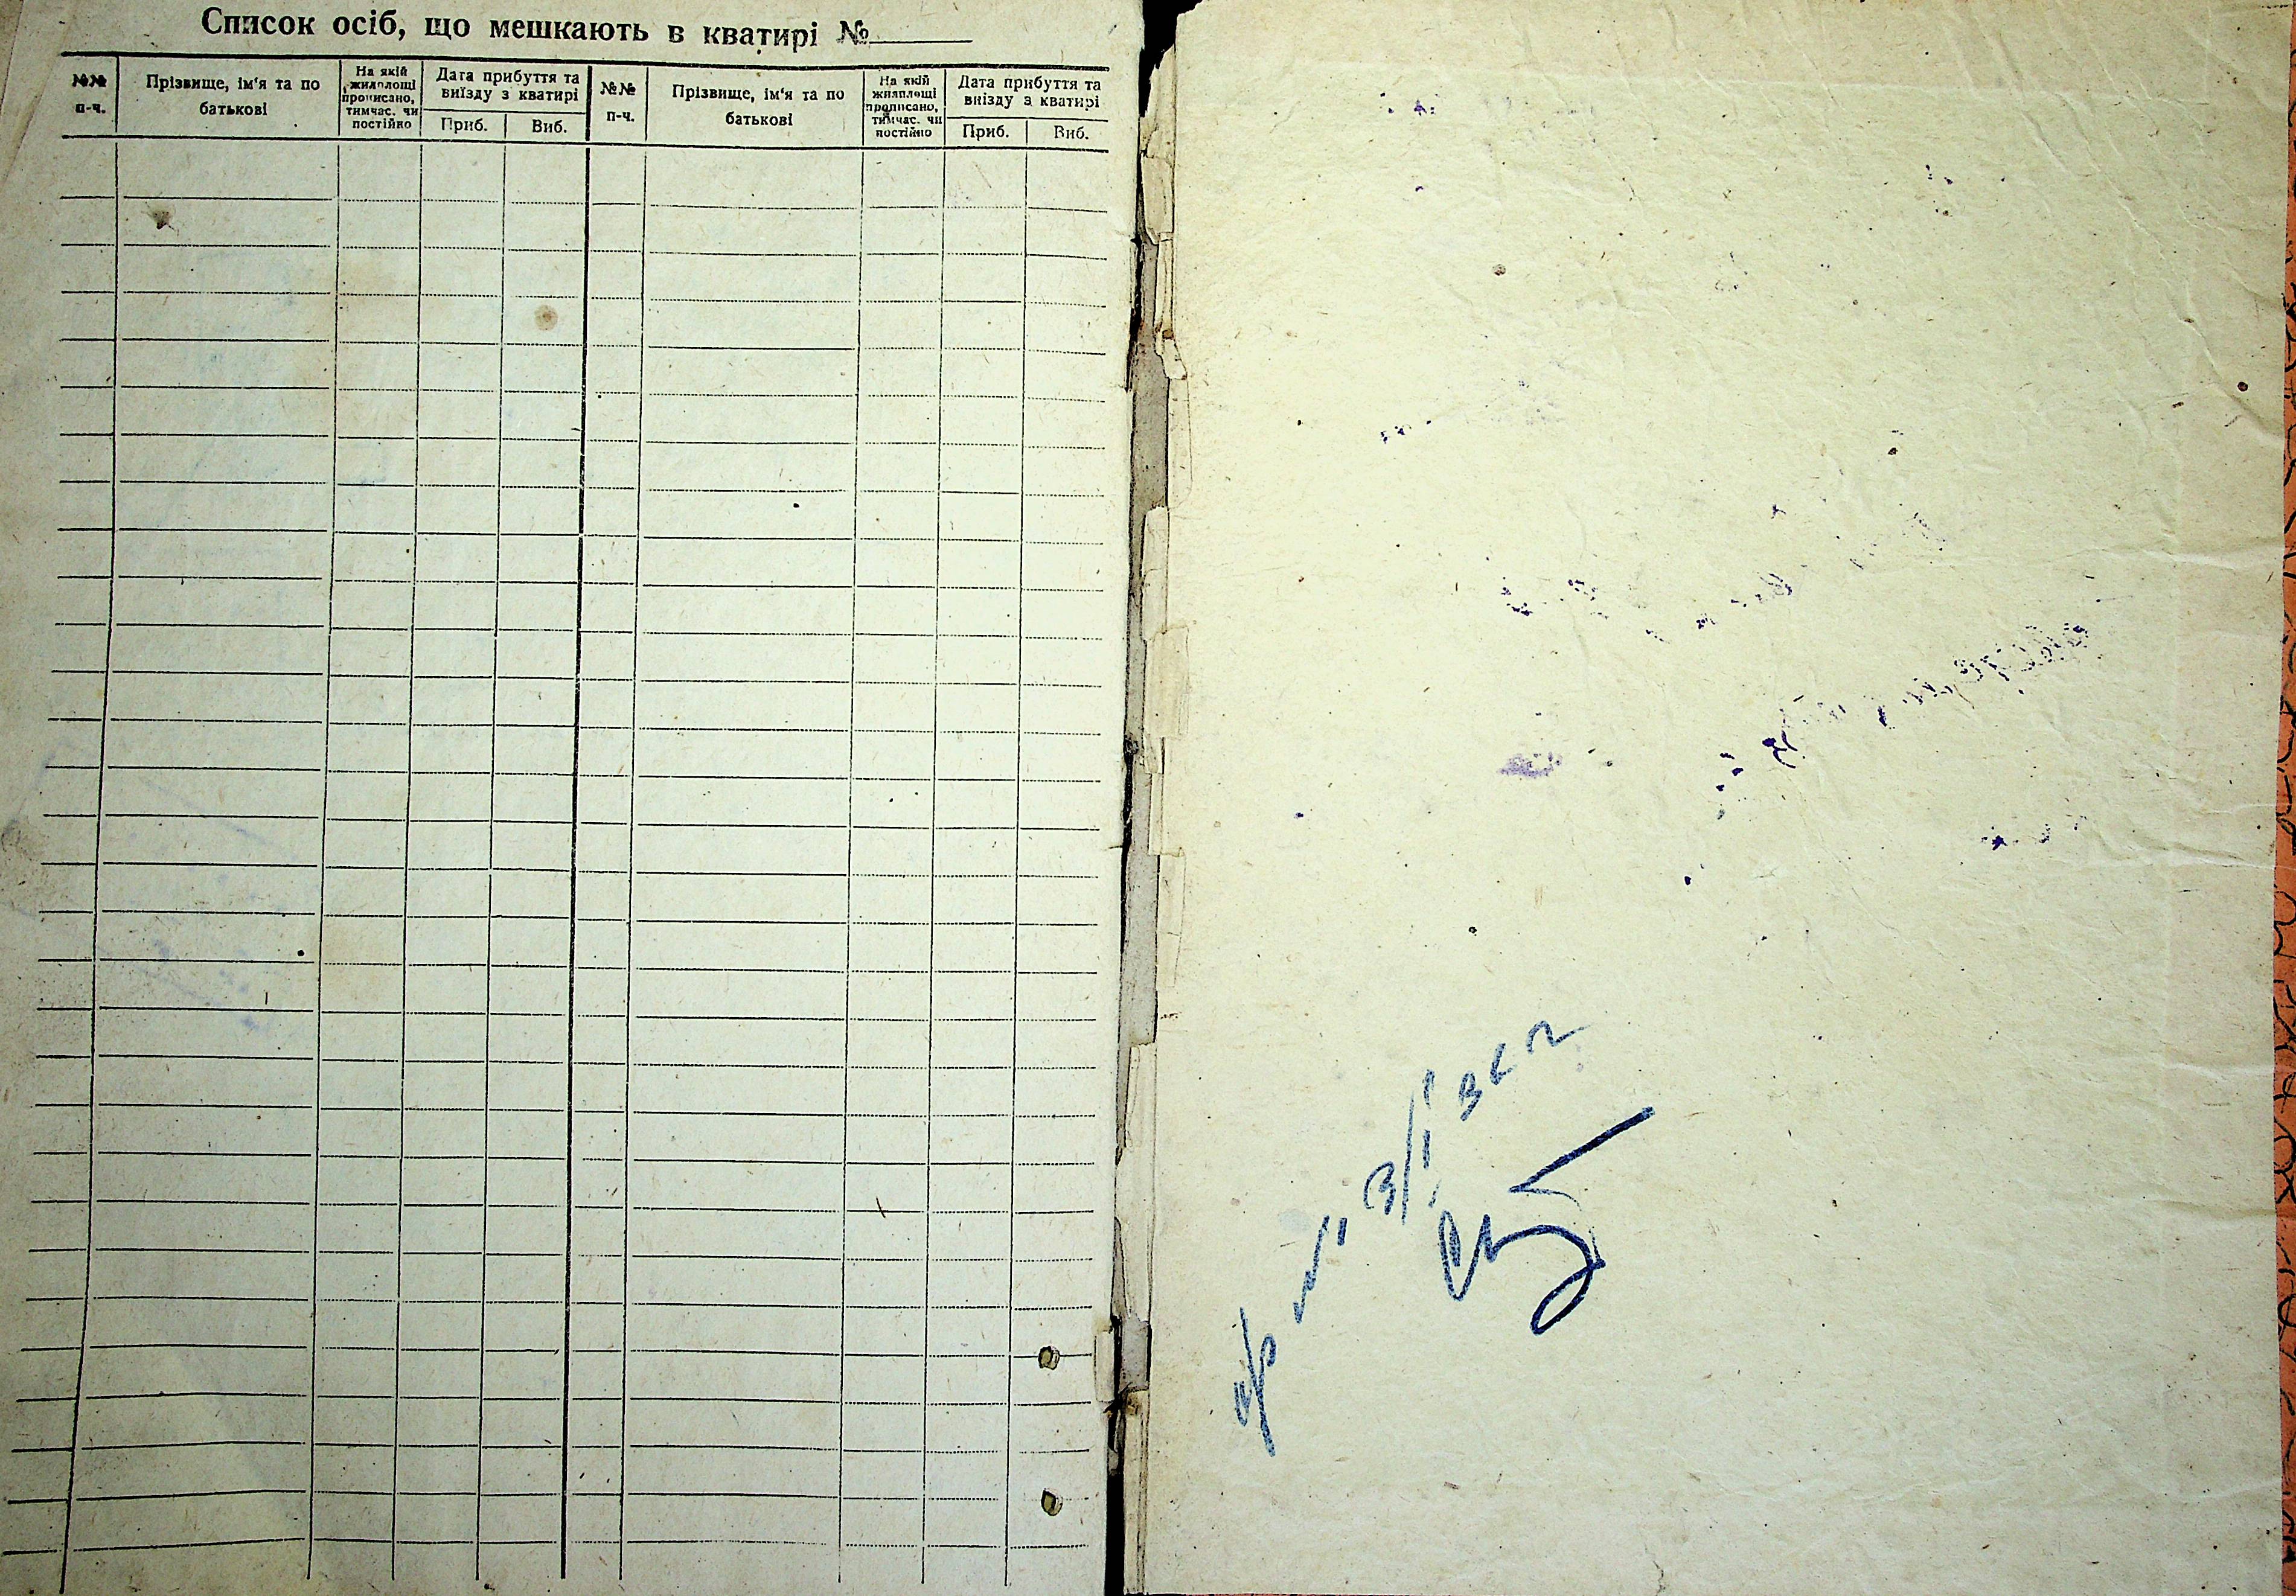 Список осіб, що мешкають в кватирі №
№№ п-ч.
Прізвище, ім'я та по батькові
На якій жилплощі прописано, тимчас. чи постійно
Дата прибуття та виїзду з кватирі
Приб.
Виб.
№№ п-ч.
Прізвище, ім'я та по батькові
На якій жилплощі прописано, тимчас. чи постійно
Дата прибуття та виїзду з кватирі
Приб.
Виб.